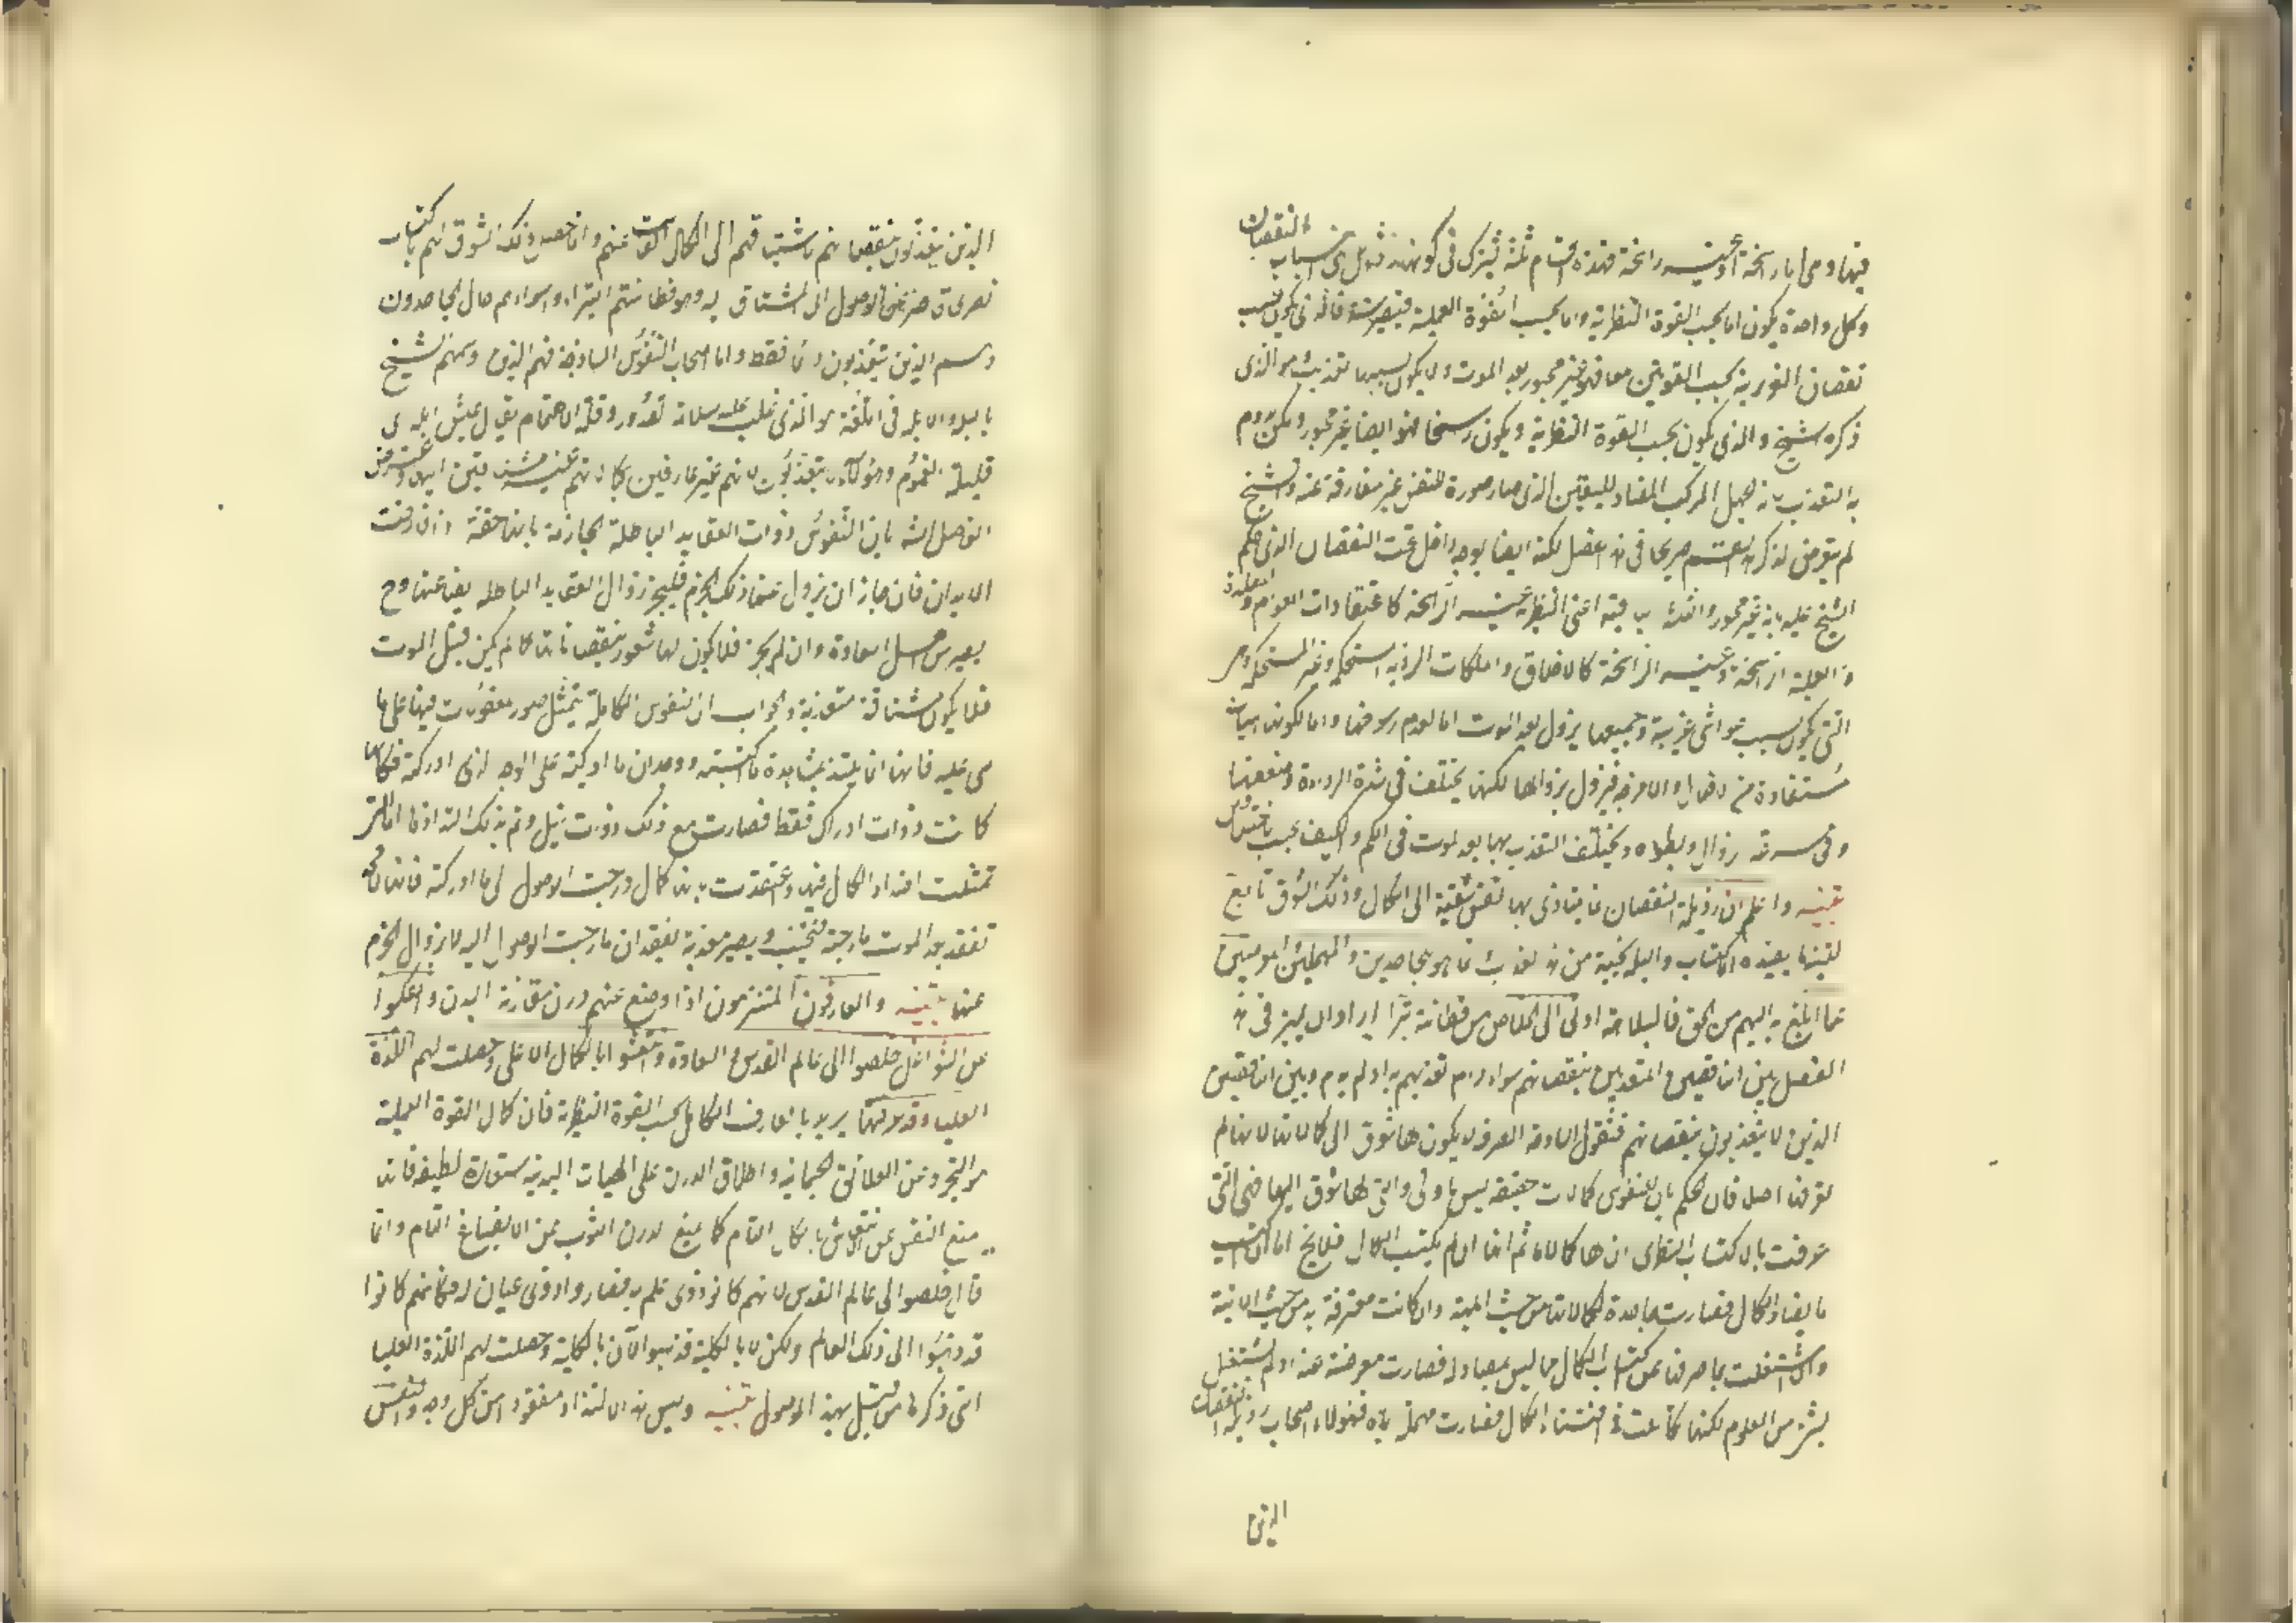 فيها وهى اما راسخة او غير راسخة فهذه اقسام ثلثة يشترك فى كونها اسباب النقصان
وكل واحدة يكون اما بحسب القوة النظرية واما بحسب القوة العملية فيصير ستة فالذى يكون بسبب
نقصان الغريزية بحسب القوتين معا فهو غير مجبور بعد الموت ولا يكون بسببها تعذيب وهو الذى
ذكره الشيخ والذى يكون بحسب القوة النظرية ويكون راسخا فهو ايضا غير مجبور ويكون دوم
به التعذيب لانه الجهل المركب المضاد لليقين الذى صار صورة للنفس غير مفارقة عنه والشيخ
لم يتعرض لذكر هذا القسم صريحا فى هذا الفصل لكنه ايضا بوجه داخل تحت النقصان الذى حكم
الشيخ عليه بانه غير مجبور والثلثة الباقية اعنى النظرية غير الراسخة كاعتقادات العوام والمقلدة
والعملية الراسخة وغير الراسخة كالاخلاق والملكات الردية المستحكمة وغير المستحكمة وهى
التى يكون بسبب غواش غريبة وجميعها يزول بعد الموت اما لعدم رسوخها واما لكونها هيئات
مستفادة من الافعال والامزجة فيزول بزوالها لكنها يختلف فى شدة الرداءة وضعفها
وفى سرعة زوال وبطوءه ويختلف التعذب بها بعد الموت فى الكم والكيف بحسب الاختلافين
تنبيه واعلم ان رذيلة النقصان انما يتاذى بها نفس شيقة الى الكمال وذلك الشوق تابع
لتنبه يفيده الاكتساب والبله بجنبة من هذا العذاب وانما هو للجاحدين والمهملين والمعرضين
عما المع به اليهم من الحق فالبلاهة ادنى الى الخلاص من فطانة بتراء اراد ان يميز فى هذا
الفصل بين الناقصين المتعذبين بنقصانهم سواء دام تعذيبهم به او لم يدم وبين الناقصين
الذين لا يتعذبون بنقصانهم فنقول الساذجة الصرفة لا يكون لها شوق الى كمالاتها لانها لم
تعرفها اصلا فان الحكم بان للنفوس كمالات حقيقية ليس باولى والتى لها شوق اليها فهى التى
عرفت بالاكتساب النظرى ان لها كمالاما ثم انها ان لم يكتسب الكمال فلا يخ اما ان اكتسبت
ما يضاد الكمال فصارت جاحدة لكمالاتها من حيث المهية وان كانت معترفة به من حيث الانية
واما اشتغلت بما صرفها عن اكتساب الكمال مما ليس بمضاد له فصارت معرضة عنه او لم يشتغل
بشئ من العلوم لكنها تكاسلت فى اقتناء الكمال فصارت مهملة اياه فهولاء اصحاب رذيلة النقصان
الذين
الذين يتعذبون بنقصانهم لاشتياقهم الى الكمال الفائت عنهم وانما حصل ذلك الشوق لهم باكتساب
نظرى قاصر عن الوصول الى المشتاق اليه وهو فطانتهم البتراء واسواءهم حال الجاحدون
وهم الذين يتعذبون دائما فقط واما اصحاب النفوس الساذجة فهم الذين وسمهم الشيخ
بالبله والابله فى اللغة هو الذى غلب عليه سلامة الصدر وقلة الاهتمام يقال عيش ابله اى
قليل الغموم وهؤلاء لا يتعذبون لانهم غير عارفين بكمالاتهم غير مشتاقين اليها واعترض
الفاضل الشارح بان النفوس ذوات العقايد الباطلة الجازمة بانها حقة اذا فارقت
الابدان فان جاز ان يزول عنها ذلك الجزم فليجز زوال العقايد الباطلة ايضا عنها وح
يصير من اهل السعادة وان لم يجز فلا يكون لها شعور بنقصاناتها كما لم يكن قبل الموت
فلا يكون مشتاقة متعذبة والجواب ان النفوس الكاملة يتمثل صور معقولات فيها على ما
هى عليه فانها انما يلتذ بمشاهدة ما اكتسبته ووجدان ما ادركته على الوجه الذى ادركته فكانها
كانت ذوات ادراك فقط فصارت مع ذلك ذوات نيل وتم بذلك التذاذها اما التى
تمثلت اضداد الكمال فيها واعتقدت بانها كمال ورجت الوصول الى ما ادركته فانها
تفقد بعد الموت ما رجته فتخيب ويصير معذبة بفقدان ما رجت الوصول اليه لا بزوال الجزم
عنها تنبيه والعارفون المتنزهون اذا وضع عنهم درن مقارنة البدن وانفكوا
عن الشواغل خلصوا الى عالم القدس والسعادة وانتقشوا بالكمال الاعلى وحصلت لهم اللذة
العليا وقد عرفتها يريد بالعارف الكامل بحسب القوة النظرية فان كمال القوة العملية
هو التجرد عن العلائق الجسمانية واطلاق الدرن على الهيئات البدنية استعارة لطيفة فانها
يمنع النفس عن انتقاش بالكمال التام كما يمنع الدرن الثوب عن الانصباغ التام وانما
قال خلصوا الى عالم القدس لانهم كانوا ذوى علم به فصاروا ذوى عيان له فكانهم كانوا
قد ذهبوا الى ذلك العالم ولكن لا بالكلية فذهبوا الآن بالكلية وحصلت لهم اللذة العليا
التى ذكرها من قبيل بهذا الوصول تنبيه وليس هذا الالتذاذ مفقودا من كل وجه والنفس